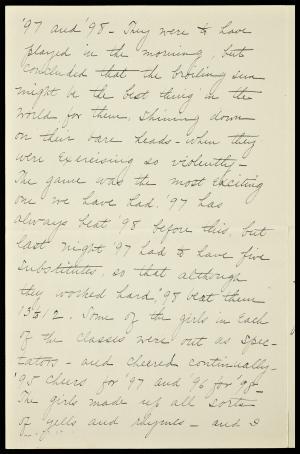 '97 and '98 - They were to have
played in the morning, but
concluded that the broiling sun
might be the best thing in the
world for them, shining down
on their bare heads - when they
were exercising so violently -
The game was the most exciting
one we have had. '97 has
always beat '98 before this, but
last night '97 had to have five
substitutes, so that although
they worked hard, '98 beat them
13 to 12. Some of the girls in each
of the classes were out as spec-
tators - and cheered continually -
'95 cheers for '97 and '96 for '98 -
The girls made up all sorts
of yells and rhymes - and I